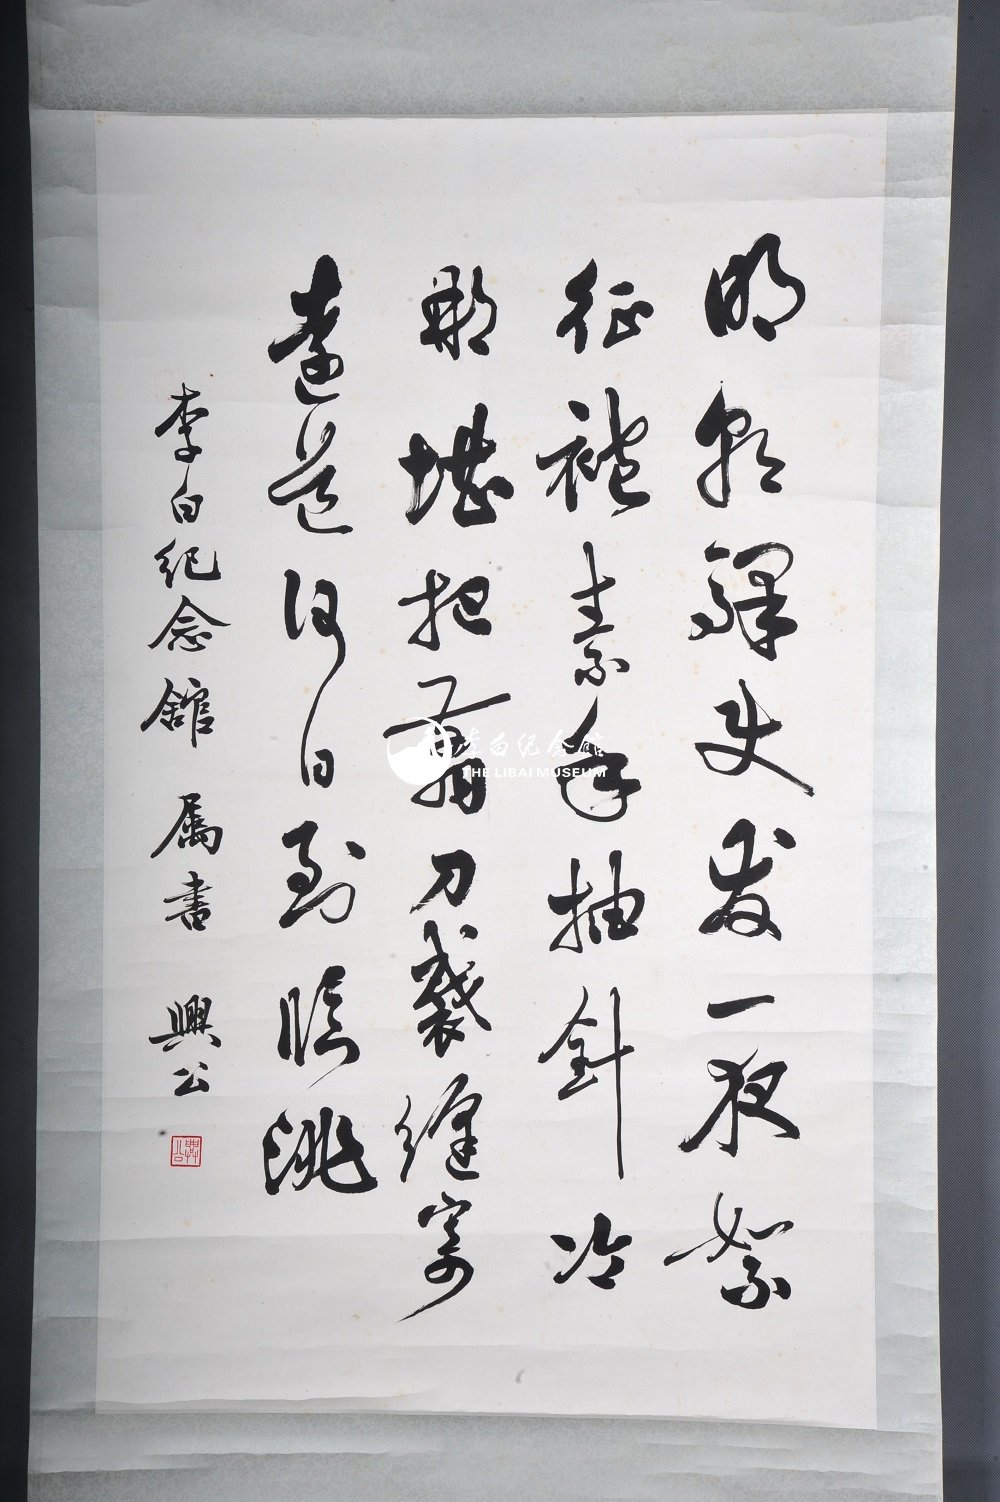 明朝驛使发一夜絮
征袍素手抽針冷
那堪把剪刀裁縫寄
遠道何日到臨洮
李白纪念館属書興公
興公
李白纪念馆
THE LIBAI MUSEUM